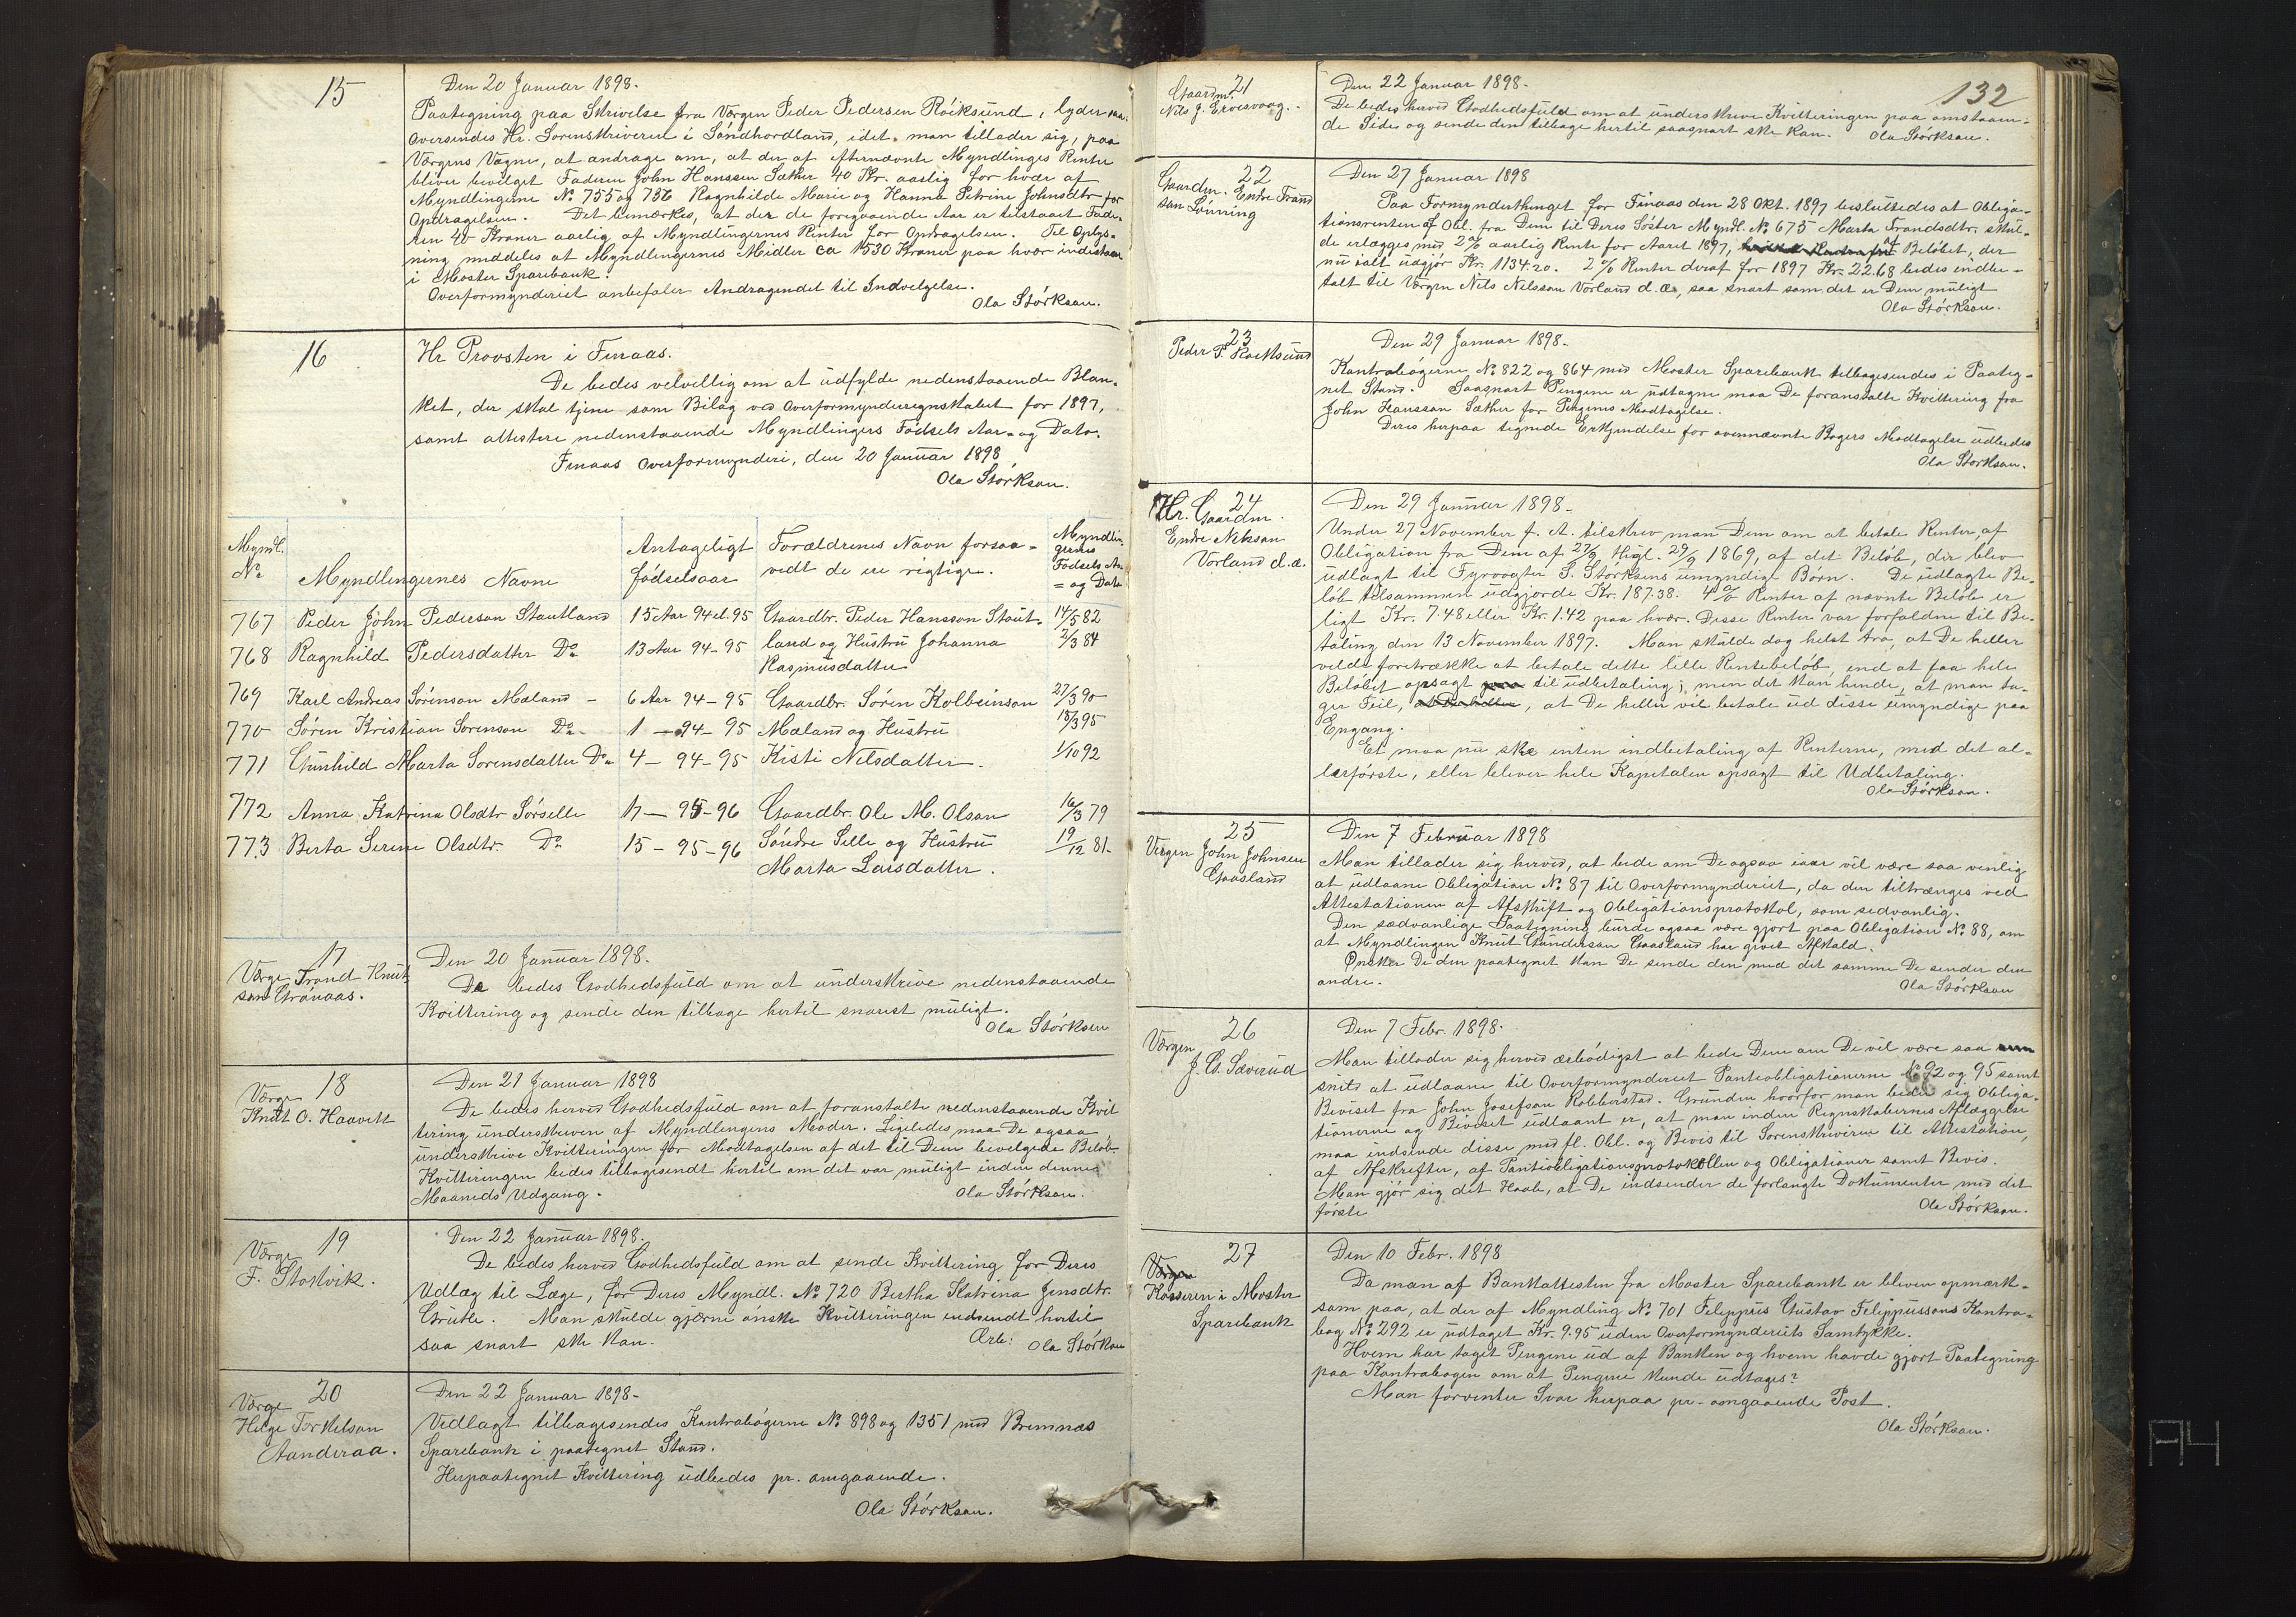 15
Den 20 Januar 1898.
Paategning paa Skrivelse fra Værgen Peder Pedersen Röiksund, lyder saa:
Oversendes Hr. Sorenskriveren i Söndhordland, idet man tillader sig, paa
Værgens Vegne, at andrage om, at der af efternævnte Myndlinges Renter
bliver bevilget Faderen John Hanssen Sæther 40 Kr. aarlig for hver af
Myndlingerne No 755 og 756 Ragnhilde Marie og Hanna Petrine Johnsdtr for
Opdragelsen. Det bemærkes, at der de foregaaende Aar er tilstaaet Fade-
ren 40 Kroner aarlig af Myndlingernes Renter for Opdragelsen. Til Oplys-
ning meddeles at Myndlingernes Midler ca 1530 Kroner paa hver indestaar
i Moster Sparebank.
Overformynderiet anbefaler Andragendet til Indvelgelse.
Ola Störksen.
16
Hr Provsten i Finaas.
De bedes velvillig om at udfylde nedenstaaende Blan-
ket, der skal tjene som Bilag ved Overformynderegnskabet for 1897,
samt attestere nedenstaaende Myndlingers Födsels Aar- og Dato.
Finaas Overformynderi, den 20 Januar 1898
Ola Störksen.
Myndl. No
Myndlingernes Navne
Antageligt födselsaar
Forældrenes Navn forsaa-
vedt de ere regtige.
Myndlin-
gernes
Födsels Aar
= og Dato
767 Peder John Pederson Stautland 15 Aar 94 el. 95 Gaardbr. Peder Hansson Staut- 14/5 82
768 Ragnhild Pedersdatter Do 13 Aar 94-95 land og Hustru Johanna 2/3 84
Rasmusdatter
769 Karl Andreas Sörenson Mæland - 6 Aar 94-95 Gaardbr. Sören Kolbeinson 27/3 90
770 Sören Kristian Sörenson Do. 1 - 94-95 Mæland og Hustru 18/3 95
771 Gunhild Marta Sorensdatter Do 4 - 94-95 Kisti Nilsdatter. 1/10 92
772 Anna Katrina Olsdtr Sörselle 17 - 95-96 Gaardbr. Ole M. Olson 16/3 79
773 Berta Serine Olsdtr. Do 15 - 95-96 Söndre Selle og Hustru 19/12 81.
Marta Larsdatter.
17
Værge Trond Knut-
son Grönaas.
Den 20 Januar 1898.
De bedes Godhedsfuld om at underskrive nedenstaaende
Kvittering og sende den tilbage hertil snarest muligt.
Ola Störksen
18
Værge
Knut O. Haavik
Den 21 Januar 1898
De bedes herved Godhedsfuld om at foranstalte nedenstaaende Kvit
tering underskreven af Myndlingens Moder. Ligeledes maa De ogsaa
underskrive Kvitteringen for Modtagelsen af det til Dem bevilgede Belöb.
Kvitteringen bedes tilbagesendt hertil om det var muligt inden denne
Maaneds Udgang.
Ola Störksen.
19
Værge
F. Stokvik.
Den 22 Januar 1898.
De bedes herved Godhedsfuld om at sende Kvittering for Deres
Udlæg til Læge, for Deres Myndl. No 720 Bertha Katrina Jensdtr.
Grutle. Man skulde gjerne önske Kvitteringen indsendt hertil
saa snart ske kan.
Ærb: Ola Störksen
20
Værge
Helge Torkelson
Aanderaa.
Den 22 Januar 1898-
Vedlagt tilbagesendes Kontrabögerne No 898 og 1351 med Bremnæs
Sparebank i paategnet Stand.
Herpaategnet Kvittering udbedes pr. omgaaende.
Ola Störksen.
132
21
Gaardm.
Nils J. Ervesvaag.
Den 22 Januar 1898.
De bedes herved Godhedsfuld om at underskrive Kvitteringen paa omstaaen-
de Side og sende den tilbage hertil saasnart ske kan. Ola Störksen.
22
Gaardm. Endre Trond
son Lönning
Den 27 Januar 1898
Paa Formynderthinget for Finaas den 28 Okt. 1897 besluttedes at Obliga-
tionsrenten af Obl. fra Dem til Deres Söster Myndl. No 675 Marta Trondsdtr. skul-
de erlægges med 2% aarlig Rente for Aaret 1897, af Belöbet, der
nu ialt udgjör Kr. 1134.20. 2% Renter deraf for 1897 Kr. 22.68 bedes indbe-
talt til Værgen Nils Nilsson Vorland d.æ, saa snart som det er Dem muligt
Ola Störksen.
23
Peder P. Roeksund
Den 29 Januar 1898.
Kontrabögerne No 822 og 864 med Moster Sparebank tilbagesendes i Paateg-
net Stand. Saasnart Pengene er udtagne maa De foranstalte Kvittering fra
John Hansson Sæther for Pengenes Modtagelse.
Deres herpaa tegnede Erkjendelse for ovennævnte Bogers Modtagelse udbedes
Ola Störksen.
24
Hr. Gaardm.
Endre Nilsson
Vorland d.æ.
Den 29 Januar 1898.
Under 27 November f. A. tilskrev man Dem om at betale Renter, af
Obligation fra Dem af 27/9 thgl. 29/9 1869, af det Belöb, der blev
udlagt til Fyrvogter S. Störksens umyndige Börn. De udlagte Be-
löb tilsammen udgjorde Kr. 187.38. 4% Renter af nævnte Belöb er
ligt Kr. 7.48 eller Kr. 1.42 paa hver. Disse Renter var forfaldne til Be-
taling den 13 November 1897. Man skulde dog helst tro, at De heller
vilde foretrække at betale dette lille Rentebelöb, end at faa hele
Belöbet opsagt til udbetaling; men det kan hende, at man ta-
ger Feil, at De heller vil betale ud disse umyndige paa
Engang.
Et maa nu ske enten indbetaling af Renterne, med det al-
lerförste, eller bliver hele Kapitalen opsagt til Udbetaling.
Ola Störksen.
25
Vergen John Johnsen
Gaasland
Den 7 Februar 1898
Man tillader sig herved, at bede om De ogsaa iaar vil være saa venlig
at udlaane Obligation No 87 til Overformynderiet, da den tiltrænges ved
Attestationen af Afskrift og Obligationsprotokol, som sedvanlig.
Den sædvanlige Paategning burde ogsaa være gjort paa Obligation No 88, om
at Myndlingen Knut Gunderson Gaasland har givet Afkald.
Önsker De den paategnet kan De sende den med det samme De sender den
andre.
Ola Störksen
26
Værgen
J. G. Sæverud
Den 7 Febr. 1898.
Man tillader sig herved ærbödigst at bede Dem om De vil være saa
snild at udlaane til Overformynderiet Pantobligationerne No 92 og 95 samt
Beviset fra John Josefson Robberstad. Grunden hvorfor man beder sig Obliga-
tionerne og Beviset udlaant er, at man inden Regnskabernes Aflæggelse
maa indsende disse med fl. Obl. og Bevis til Sorenskriveren til Attestation,
af Afskrifter, af Pantobligationsprotokollen og Obligationer samt Bevis.
Man gjör sig det Haab, at De indsender de forlangte Dokumenter med det
förste
Ola Störksen.
27
Kasseren i Moster
Sparebank
Den 10 Febr. 1898
Da man af Bankattesten fra Moster Sparebank er bleven opmærk-
som paa, at der af Myndling No 701 Filippus Gustav Filippussons Kontra-
bog No 292 er udtaget Kr. 9.95 uden Overformynderiets Samtykke.
Hvem har taget Pengene ud af Banken og hvem havde gjort Paategning
paa Kontrabogen om at Pengene kunde udtages?
Man forventer Svar herpaa pr. omgaaende Post.
Ola Störksen.
A4